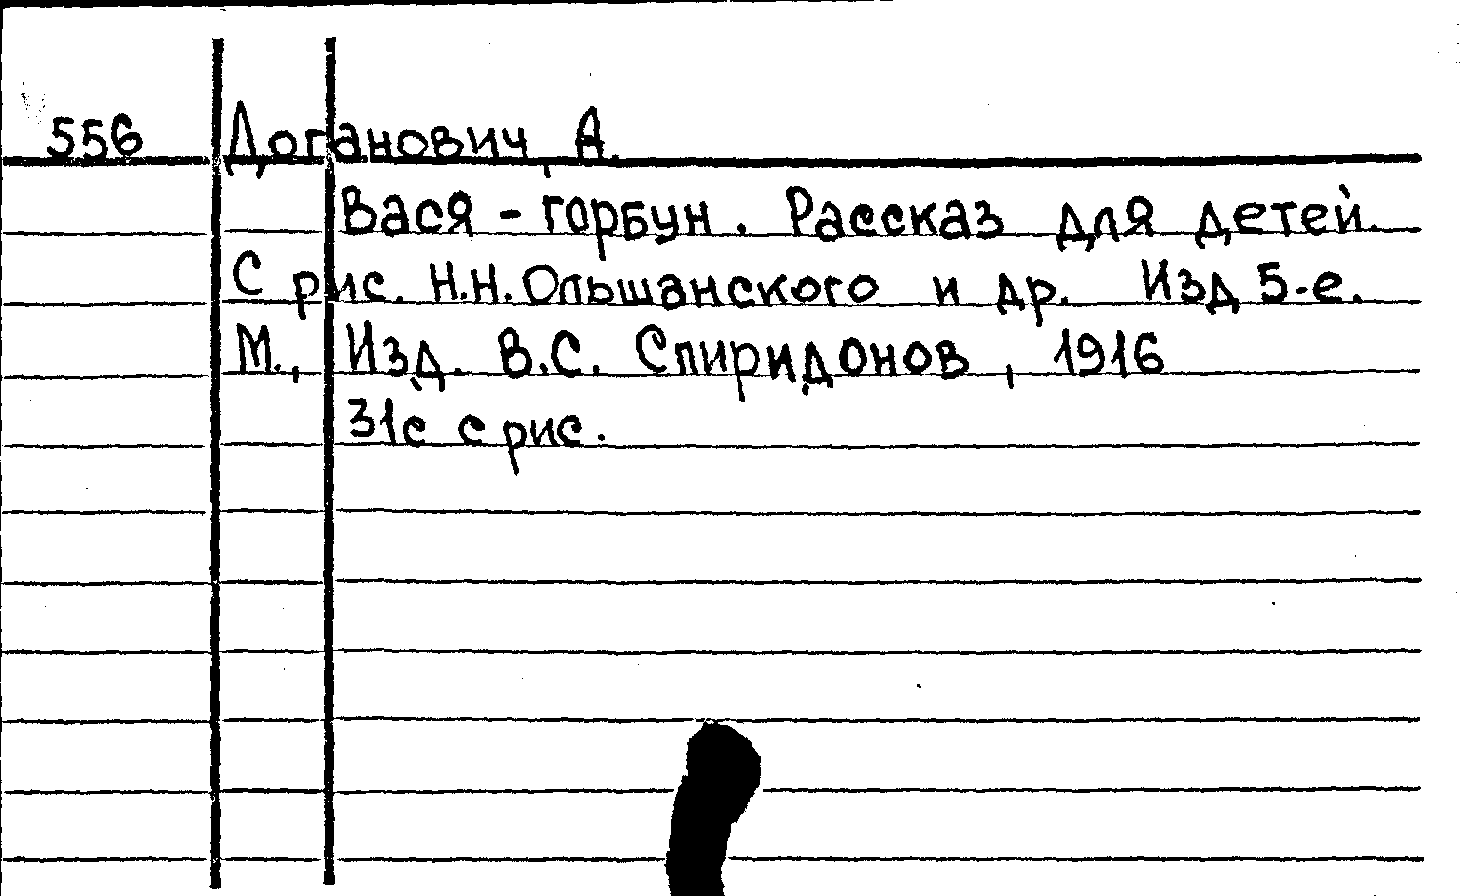 556 Доганович, А.
Вася - горбун. Рассказ для детей.
С рис. Н.Н. Ольшанского и др. Изд 5-е.
М., Изд. В.С. Спиридонов, 1916
31с с рис.